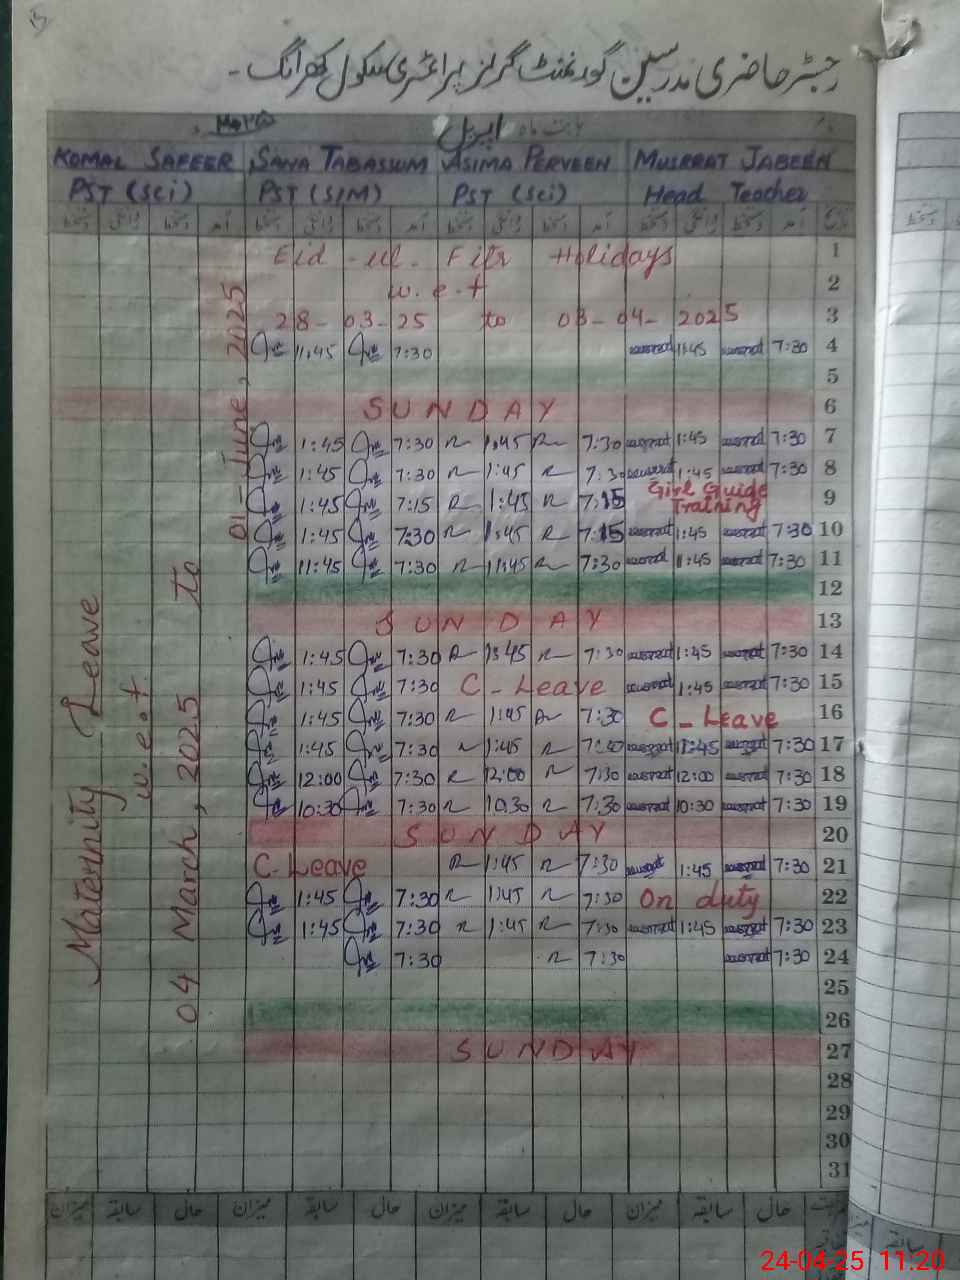 رجسٹر حاضری مدرسین گورنمنٹ گرلز پرائمری سکول کھرانگ۔
بابت ماہ اپریل ۲۰۲۵ء
KOMAL SAFEER SANA TABASUM ASIMA PERVEEN MUSRRAT JABEEN
PST (Sci) PST (S/M) PST (Sci) Head Teacher
دستخط روانگی دستخط آمد دستخط روانگی دستخط آمد دستخط روانگی دستخط آمد دستخط روانگی دستخط آمد تاریخ
Eid-ul-Fitr Holidays 1
w.e.f 2
28-03-25 to 03-04-2025 3
11:45 7:30 musrrat 1:45 musrrat 7:30 4
5
SUNDAY 6
1:45 7:30 1:45 7:30 musrrat 1:45 musrrat 7:30 7
1:45 7:30 1:45 7:30 musrrat 1:45 musrrat 7:30 8
1:45 7:15 1:45 7:15 Girl Guide Training 9
1:45 7:30 1:45 7:15 musrrat 1:45 musrrat 7:30 10
11:45 7:30 11:45 7:30 musrrat 11:45 musrrat 7:30 11
12
SUNDAY 13
1:45 7:30 1:45 7:30 musrrat 1:45 musrrat 7:30 14
1:45 7:30 C-Leave musrrat 1:45 musrrat 7:30 15
1:45 7:30 1:45 7:30 C-Leave 16
1:45 7:30 1:45 7:30 musrrat 1:45 musrrat 7:30 17
12:00 7:30 12:00 7:30 musrrat 12:00 musrrat 7:30 18
10:30 7:30 10:30 7:30 musrrat 10:30 musrrat 7:30 19
SUNDAY 20
C-Leave 1:45 7:30 musrrat 1:45 musrrat 7:30 21
1:45 7:30 1:45 7:30 On duty 22
1:45 7:30 1:45 7:30 musrrat 1:45 musrrat 7:30 23
7:30 7:30 musrrat 7:30 24
25
26
SUNDAY 27
28
29
30
31
Maternity Leave
w.e.f
04 March, 2025 to
01-June, 2025
میزان سابقہ حال میزان سابقہ حال میزان سابقہ حال میزان سابقہ حال
میزان سابقہ
24-04-25 11:20